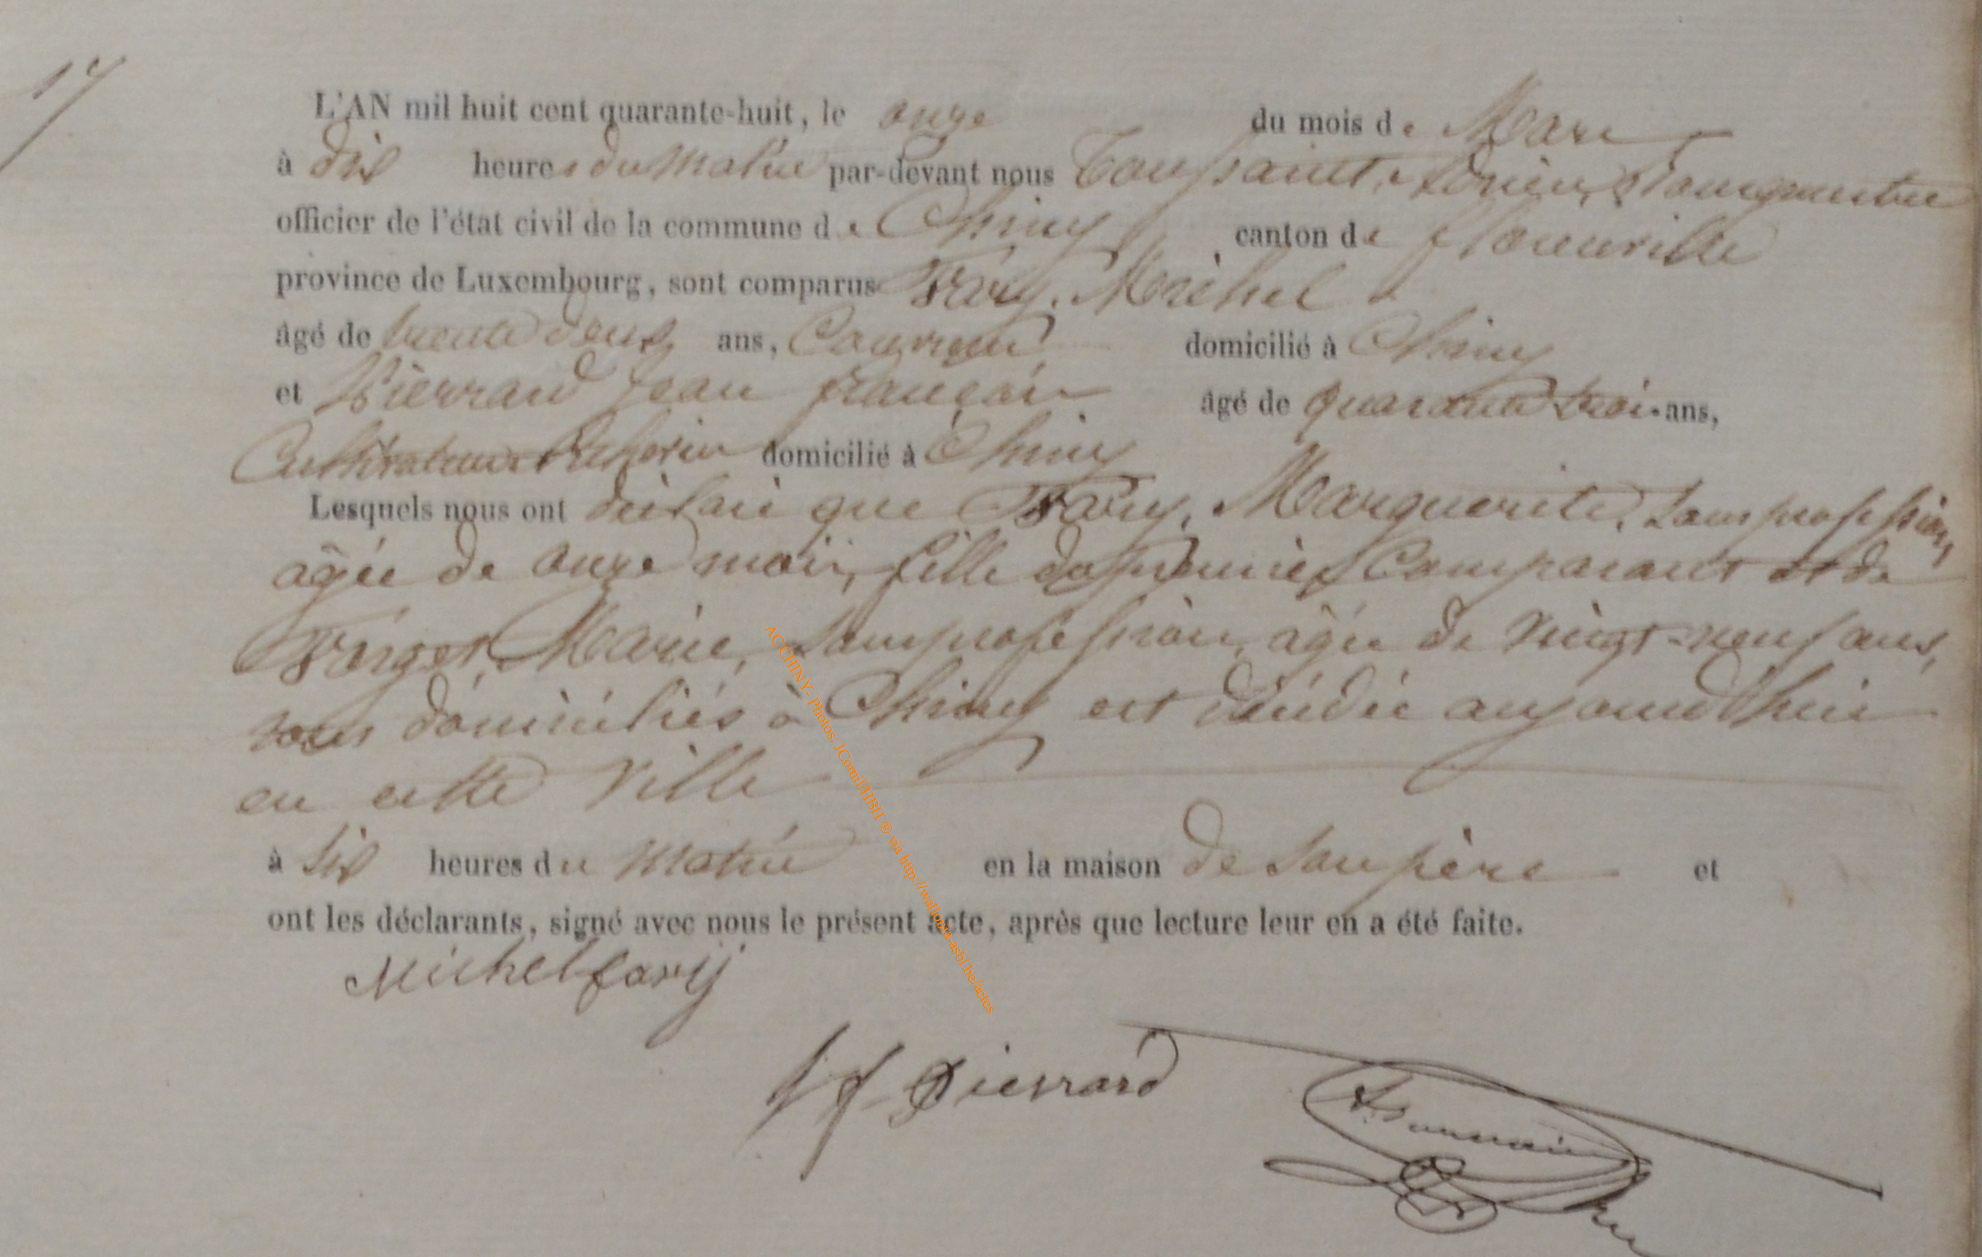 17
L'AN mil huit cent quarante-huit, le onze du mois de Mars
à dix heures du Matin par-devant nous Toussaint, Adrien, Bourgmestre
officier de l'état civil de la commune de Chiny canton de florenville
province de Luxembourg, sont comparus Favy, Michel
âgé de trente deux ans, Couvreur domicilié à Chiny
et Pierrard Jean françois âgé de quarante trois ans,
Cultivateur domicilié à Chiny
Lesquels nous ont déclaré que Favy, Marguerite, sans profession,
âgée de onze mois, fille du premier Comparant et de
Forget, Marie, sans profession, âgée de vingt-neuf ans,
tous domiciliés à Chiny est décédée aujourd'hui
en cette Ville
à six heures du Matin en la maison de son père et
ont les déclarants, signé avec nous le présent acte, après que lecture leur en a été faite.
Michel favÿ
Jf Pierrard